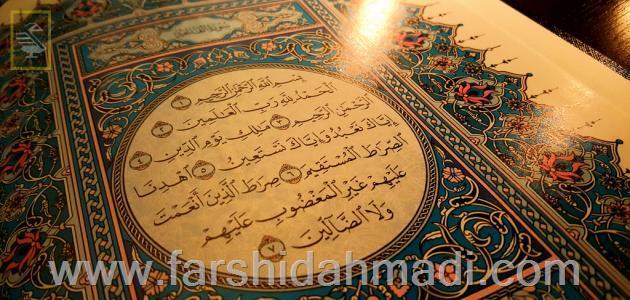 بِسْمِ اللَّهِ الرَّحْمَٰنِ الرَّحِيمِ ١
الْحَمْدُ لِلَّهِ رَبِّ الْعَالَمِينَ ٢
الرَّحْمَٰنِ الرَّحِيمِ ٣ مَالِكِ يَوْمِ الدِّينِ ٤
إِيَّاكَ نَعْبُدُ وَإِيَّاكَ نَسْتَعِينُ ٥ اهْدِنَا
الصِّرَاطَ الْمُسْتَقِيمَ ٦ صِرَاطَ الَّذِينَ أَنْعَمْتَ
عَلَيْهِمْ غَيْرِ الْمَغْضُوبِ عَلَيْهِمْ
وَلَا الضَّالِّينَ ٧
www.farshidahmadi.com